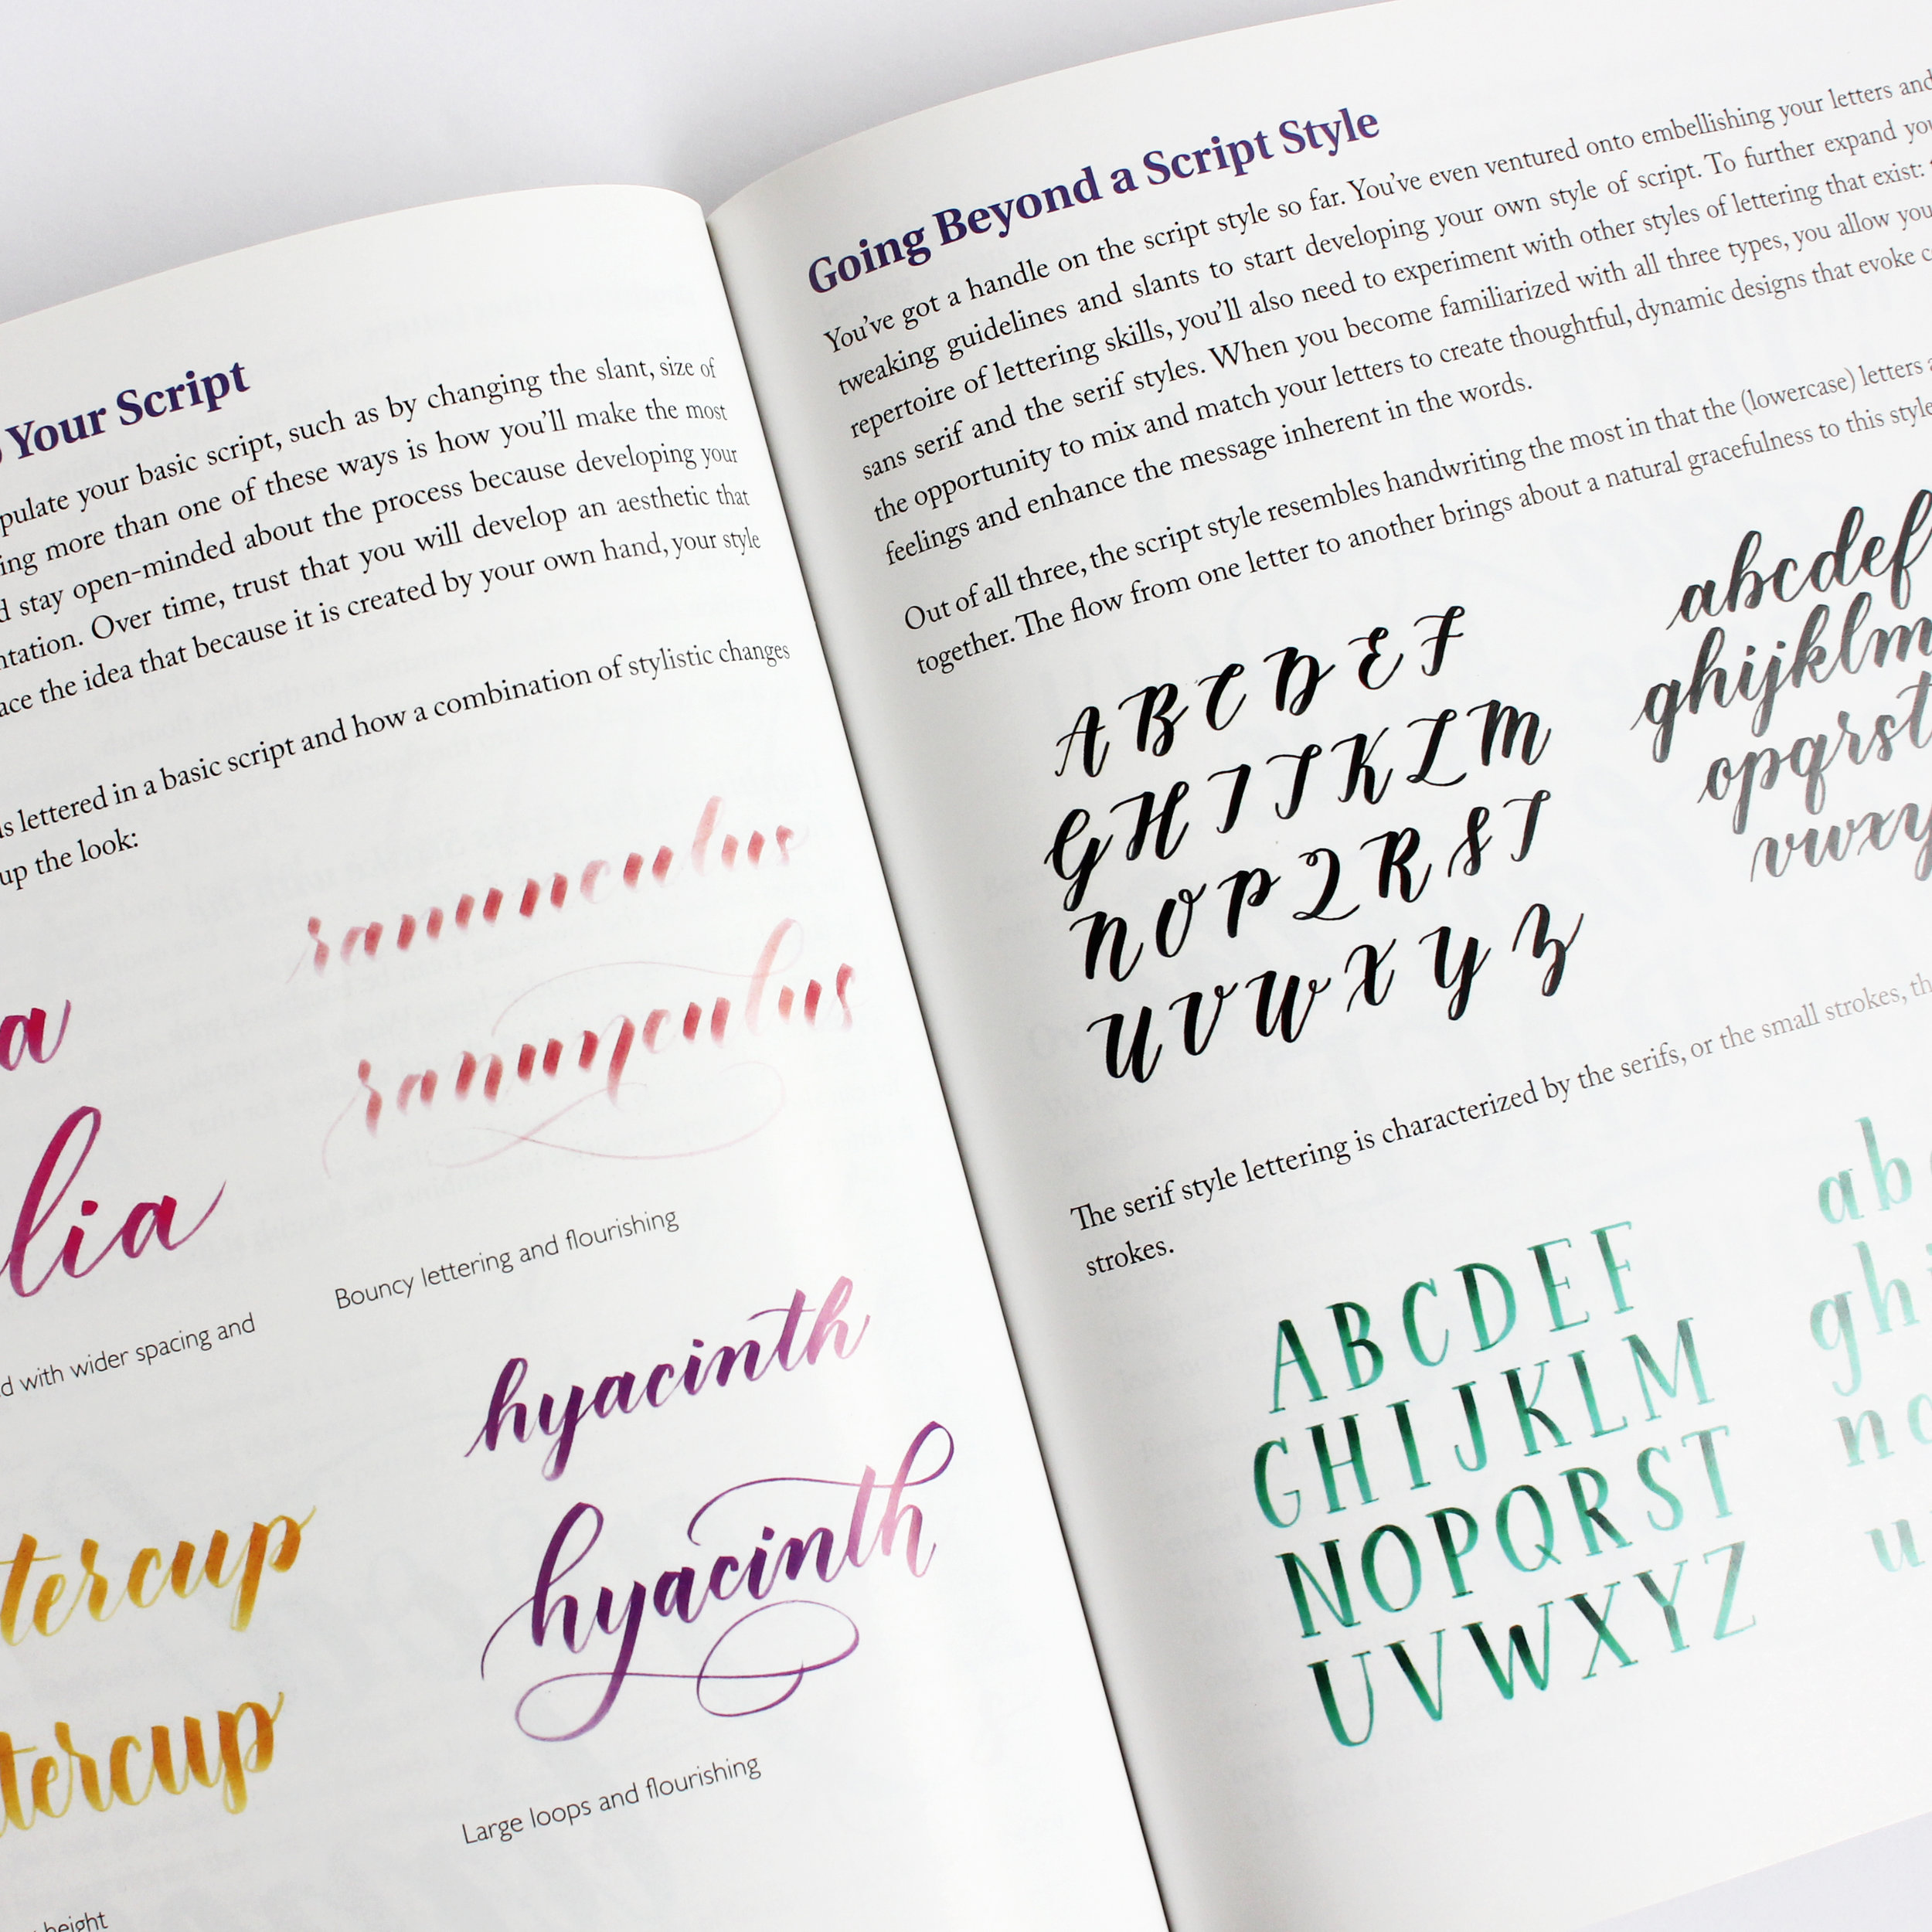 Your Script
your basic script, such as by changing the slant, size of
more than one of these ways is how you'll make the most
stay open-minded about the process because developing your
Over time, trust that you will develop an aesthetic that
the idea that because it is created by your own hand, your style
lettered in a basic script and how a combination of stylistic changes
up the look:
ranunculus
ranunculus
Bouncy lettering and flourishing
with wider spacing and
hyacinth
hyacinth
Large loops and flourishing
height
Going Beyond a Script Style
You've got a handle on the script style so far. You've even ventured onto embellishing your letters and
tweaking guidelines and slants to start developing your own style of script. To further expand
repertoire of lettering skills, you'll also need to experiment with other styles of lettering that exist:
sans serif and the serif styles. When you become familiarized with all three types, you allow
the opportunity to mix and match your letters to create thoughtful, dynamic designs that evoke
feelings and enhance the message inherent in the words.
Out of all three, the script style resembles handwriting the most in that the (lowercase) letters
together. The flow from one letter to another brings about a natural gracefulness to this style
A B C D E F
G H I J K L M
N O P Q R S T
U V W X Y Z
abcdef
ghijklm
opqrst
vwxy
The serif style lettering is characterized by the serifs, or the small strokes,
strokes.
A B C D E F
G H I J K L M
N O P Q R S T
U V W X Y Z
a b
g h
n
u